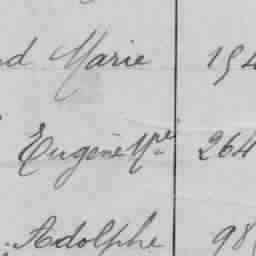 d Marie 154
Eugène Mre 264
Adolphe 98